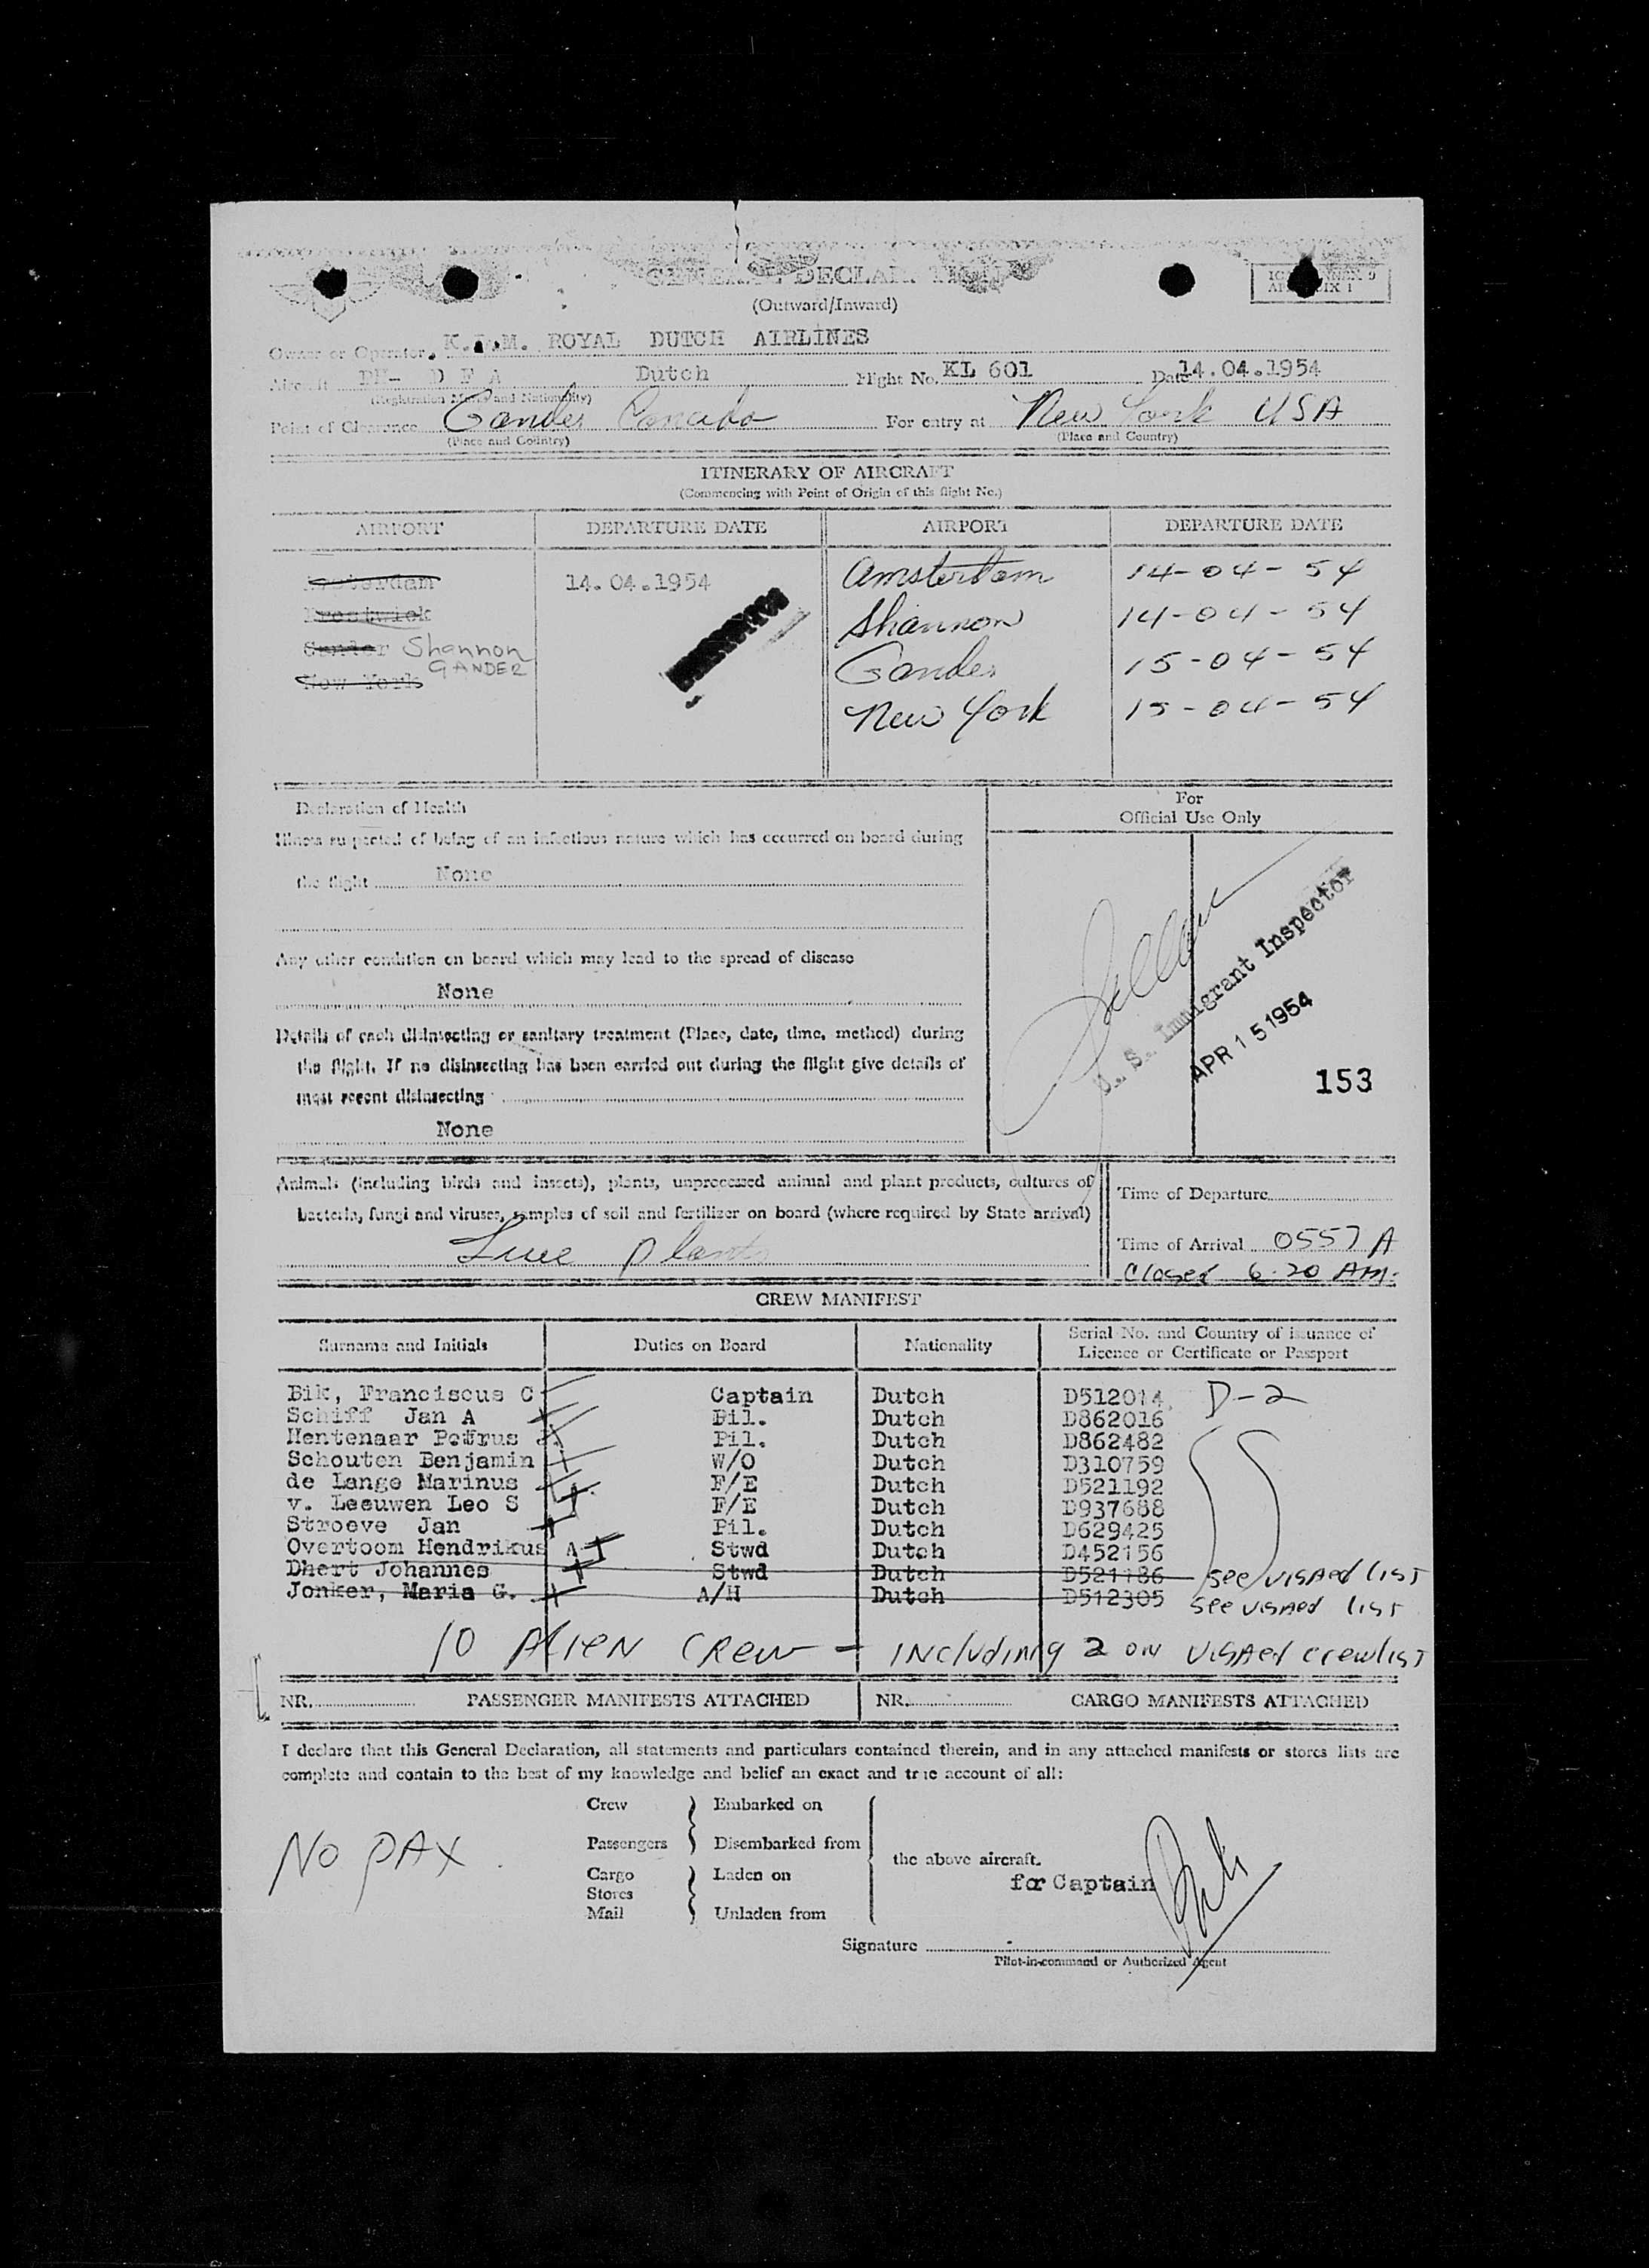 GENERAL DECLARATION
(Outward/Inward)
Owner or Operator K.L.M. ROYAL DUTCH AIRLINES
Aircraft PH- D F A Dutch Flight No. KL 601 Date 14.04.1954
(Registration Marks and Nationality)
Point of Clearance Gander Canada For entry at New York USA
(Place and Country) (Place and Country)
ITINERARY OF AIRCRAFT
(Commencing with Point of Origin of this flight No.)
AIRPORT DEPARTURE DATE AIRPORT DEPARTURE DATE
Amsterdam 14.04.1954 Amsterdam 14-04-54
Prestwick Shannon 14-04-54
Gander Shannon GANDER Gander 15-04-54
New York New York 15-04-54
Declaration of Health
Illness suspected of being of an infectious nature which has occurred on board during
the flight None
Any other condition on board which may lead to the spread of disease
None
Details of each disinsecting or sanitary treatment (Place, date, time, method) during
the flight. If no disinsecting has been carried out during the flight give details of
most recent disinsecting
None
For
Official Use Only
U. S. Immigrant Inspector
APR 15 1954
153
Animals (including birds and insects), plants, unprocessed animal and plant products, cultures of
bacteria, fungi and viruses, samples of soil and fertilizer on board (where required by State arrival)
Live plants
Time of Departure
Time of Arrival 0557 A
Closed 6:20 AM.
CREW MANIFEST
Surname and Initials Duties on Board Nationality Serial No. and Country of issuance of
Licence or Certificate or Passport
Bik, Franciscus C Captain Dutch D512014 D-2
Schiff Jan A Pil. Dutch D862016
Hentenaar Petrus Pil. Dutch D862482
Schouten Benjamin W/O Dutch D310759
de Lange Marinus F/E Dutch D521192
v. Leeuwen Leo S F/E Dutch D937688
Stroeve Jan Pil. Dutch D629425
Overtoom Hendrikus A Stwd Dutch D452156
Dhert Johannes Stwd Dutch D521186 see visaed list
Jonker, Maria G. A/H Dutch D512305 see visaed list
10 Alien Crew - including 2 on visaed crewlist
NR. PASSENGER MANIFESTS ATTACHED NR. CARGO MANIFESTS ATTACHED
I declare that this General Declaration, all statements and particulars contained therein, and in any attached manifests or stores lists are
complete and contain to the best of my knowledge and belief an exact and true account of all:
Crew Embarked on
Passengers Disembarked from
Cargo Laden on
Stores
Mail Unladen from
the above aircraft.
NO PAX
for Captain Bik
Signature
Pilot-in-command or Authorized Agent